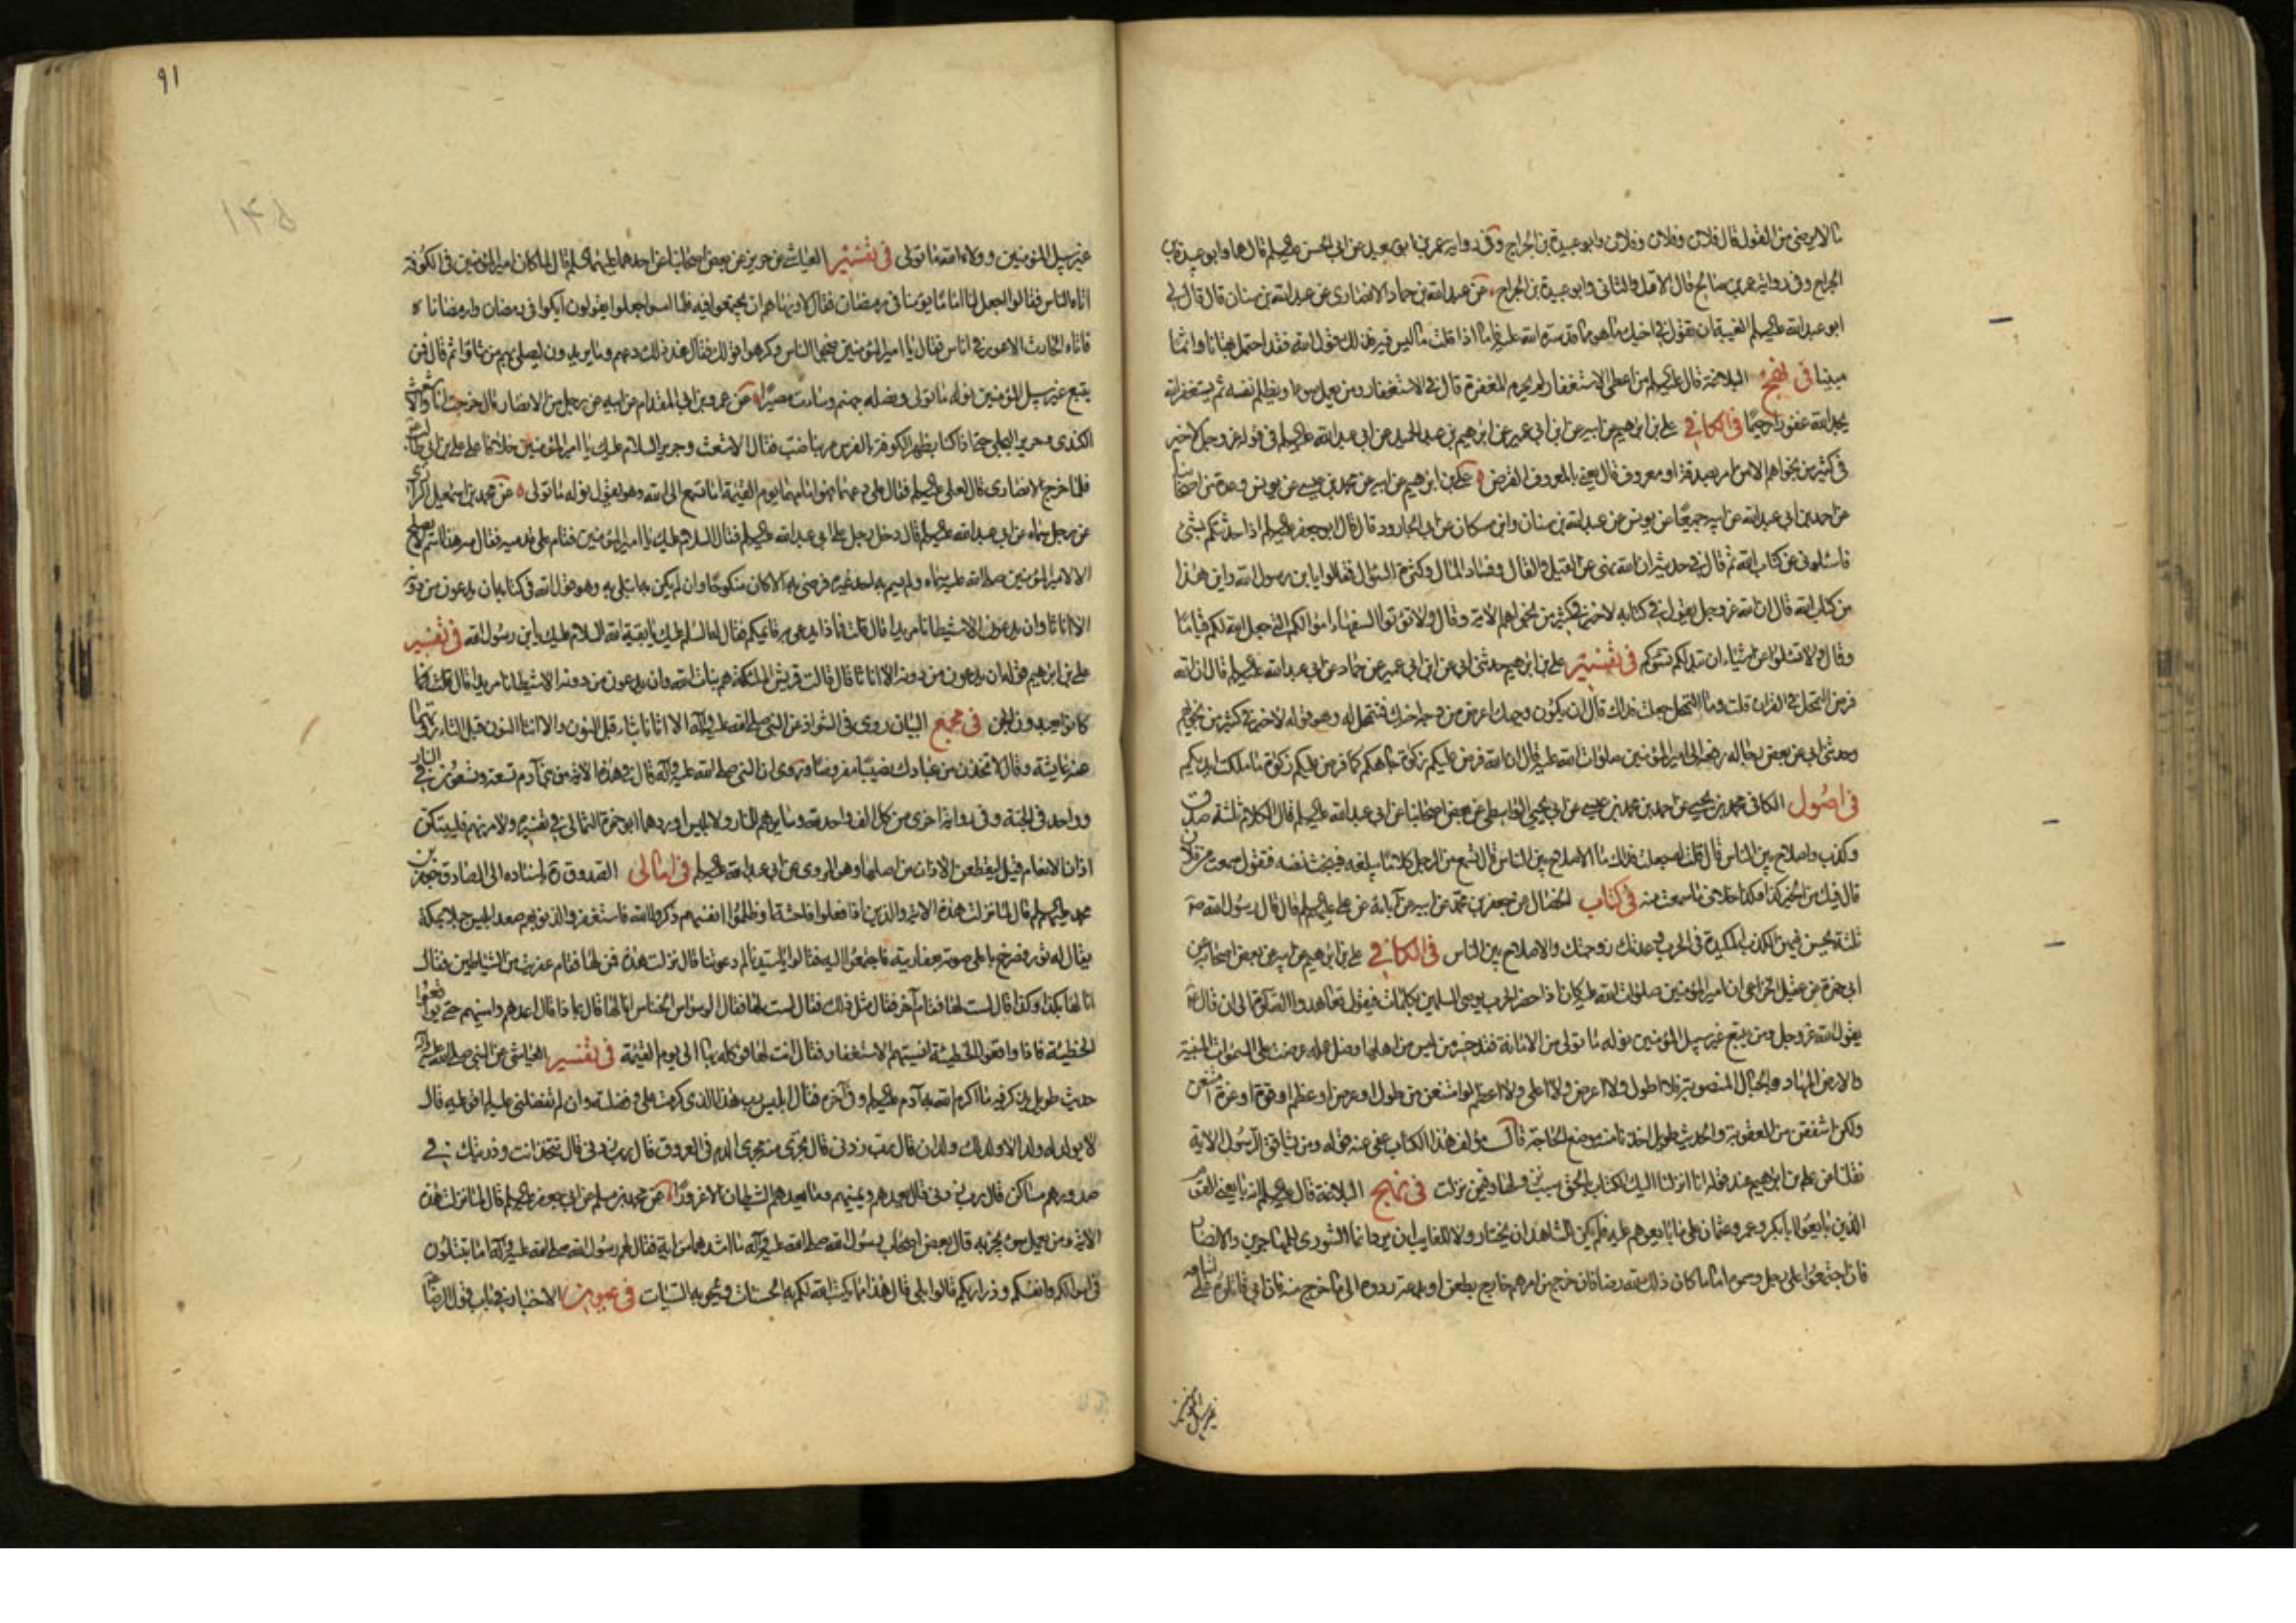 ما لا يرضى من القول قال فلان وفلان وفلان وابو عبيدة بن الجراح وفى رواية عمر بن ابى سعيد عن ابى الحسن عليه السلم قال هما وابو عبيدة بن
الجراح وفى رواية عمر بن صالح قال الاول والثانى وابو عبيدة بن الجراح عن عبد الله بن حماد الانصارى عن عبد الله بن سنان قال قال لى
ابو عبد الله عليه السلم الغيبة ان تقول فى اخيك ما هو فيه مما قد ستره الله عليه فاما اذا قلت ما ليس فيه فذلك قول الله فقد احتمل بهتانا واثما
مبينا فى نهج البلاغة قال عليه السلم من اعطى الاستغفار لم يحرم المغفرة قال فى الاستغفار ومن يعمل سوءا او يظلم نفسه ثم يستغفر الله
يجد الله غفورا رحيما فى الكافى على بن ابرهيم عن ابيه عن ابن ابى عمير عن ابرهيم بن عبد الحميد عن ابى عبد الله عليه السلم فى قوله عز وجل لا خير
فى كثير من نجواهم الا من امر بصدقة او معروف قال يعنى بالمعروف القرض على بن ابرهيم عن ابيه عن محمد بن عيسى عن يونس وعدة من اصحابنا
عن احمد بن ابى عبد الله عن ابيه جميعا عن يونس عن عبد الله بن سنان وابن مسكان عن ابى الجارود قال قال ابو جعفر عليه السلم اذا حدثتكم بشئ
فاسئلونى عن كتاب الله ثم قال فى حديثه ان الله نهى عن القيل والقال وفساد المال وكثرة السؤال فقالوا يا بن رسول الله واين هذا
من كتاب الله قال ان الله عز وجل يقول فى كتابه لا خير فى كثير من نجواهم الاية وقال ولا تؤتوا السفهاء اموالكم التى جعل الله لكم قياما
وقال ولا تسئلوا عن اشياء ان تبد لكم تسؤكم فى تفسير على بن ابرهيم حدثنى ابى عن ابن ابى عمير عن حماد عن ابى عبد الله عليه السلم قال ان الله
فرض التمحل فى القران قلت وما التمحل جعلت فداك قال ان يكون وجهك اعرض من وجه اخيك فتمحل له وهو قوله لا خير فى كثير من نجواهم
وحدثنى ابى عن بعض رجاله رفعه الى امير المؤمنين صلوات الله عليه قال ان الله فرض عليكم زكوة جاهكم كما فرض عليكم زكوة ما ملكت ايديكم
فى اصول الكافى محمد بن يحيى عن احمد بن محمد بن عيسى عن ابى يحيى الواسطى عن بعض اصحابنا عن ابى عبد الله عليه السلم قال الكلام ثلثة صدق
وكذب واصلاح بين الناس قال قلت له جعلت فداك ما الاصلاح بين الناس قال تسمع من الرجل كلاما يبلغه فيخبث نفسه فتقول سمعت من فلان
قال فيك من الخير كذا وكذا خلاف ما سمعت منه فى كتاب الخصال عن جعفر بن محمد عن ابيه عن آبائه عن على عليه السلم قال قال رسول الله ص
ثلثة يحسن فيهن الكذب المكيدة فى الحرب وعدتك زوجتك والاصلاح بين الناس فى الكافى على بن ابرهيم عن ابيه عن بعض اصحابه عن
ابى حمزة عن عقيل الخزاعى ان امير المؤمنين صلوات الله عليه كان اذا حضر الحرب يوصى المسلمين بكلمات فيقول تعاهدوا الصلوة الى ان قال
يقول الله عز وجل ومن يتبع غير سبيل المؤمنين نوله ما تولى من الامانة فقد خسر من ليس من اهلها وضل عمله عرضت على السموات المبنية
والارض المهاد والجبال المنصوبة فلا اطول ولا اعرض ولا اعلى ولا اعظم لو امتنعن من طول او عرض او عظم او قوة او عزة امتنعن
ولكن اشفقن من العقوبة والحديث طويل اخذنا منه موضع الحاجة قال مؤلف هذا الكتاب عفى عنه قوله ومن يشاقق الرسول الاية
نقلنا عن على بن ابرهيم عند قوله انا انزلنا اليك الكتاب بالحق سبب نزولها وفيمن نزلت فى نهج البلاغة قال عليه السلم انه بايعنى القوم
الذين بايعوا ابا بكر وعمر وعثمان على ما بايعوهم عليه فلم يكن للشاهد ان يختار ولا للغايب ان يرد وانما الشورى للمهاجرين والانصار
فان اجتمعوا على رجل وسموه اماما كان ذلك لله رضا فان خرج من امرهم خارج بطعن او بدعة ردوه الى ما خرج منه فان ابى قاتلوه على اتباعه
غير سبيل المؤمنين
٩١
١٤٥
غير سبيل المؤمنين وولاه الله ما تولى فى تفسير العياشى عن حريز عن بعض اصحابنا عن احدهما عليهما السلم قال لما كان امير المؤمنين فى الكوفة
اتاه الناس فقالوا اجعل لنا اماما يؤمنا فى رمضان فقال لا ونهاهم ان يجتمعوا فيه فلما امسوا جعلوا يقولون ابكوا فى رمضان وارمضاناه
فاتاه الحارث الاعور فى اناس فقال يا امير المؤمنين ضج الناس وكرهوا قولك فقال عند ذلك دعهم وما يريدون ليصلى بهم من شاؤا ثم قال فمن
يتبع غير سبيل المؤمنين نوله ما تولى ونصله جهنم وساءت مصيرا عن عمرو بن ابى المقدام عن ابيه عن رجل من الانصار قال خرجت انا والاشعث
الكندى وجرير البجلى حتى اذا كنا بظهر الكوفة بالفرس مر بنا ضب فقال الاشعث وجرير السلام عليك يا امير المؤمنين خلافا على على بن ابى طالب
فلما خرج الانصارى قال لعلى عليه السلم فقال على دعهما فهو امامهما يوم القيمة اما تسمع الى الله وهو يقول نوله ما تولى عن محمد بن اسمعيل الرازى
عن رجل سماه عن ابى عبد الله عليه السلم قال دخل رجل على ابى عبد الله عليه السلم فقال السلام عليك يا امير المؤمنين فقام على قدميه فقال مه هذا اسم لا يصلح
الا لامير المؤمنين صلى الله عليه سماه ولم يسم به احد غيره فرضى به الا كان منكوحا وان لم يكن به ابتلى به وهو قول الله فى كتابه ان يدعون من دونه
الا اناثا وان يدعون الا شيطانا مريدا قال قلت فماذا يدعى به قائمكم فقال يقال له السلم عليك يا بقية الله السلام عليك يا بن رسول الله فى تفسير
على بن ابرهيم قوله ان يدعون من دونه الا اناثا قال قالت قريش الملئكة هم بنات الله وان يدعون من دونه الا شيطانا مريدا قال
كانوا يعبدون الجن فى مجمع البيان روى فى الشواذ عن النبى صلى الله عليه وآله الا اثانا بثاء قبل النون والا انثا النون قبل الثاء روتهما
عنه عايشة وقال لاتخذن من عبادك نصيبا مفروضا وروى ان النبى صلى الله عليه وآله قال فى هذه الاية من بنى آدم تسعة وتسعون فى النار
وواحد فى الجنة وفى رواية اخرى من كل الف واحد لله وسايرهم للنار ولابليس اوردهما ابو حمزة الثمالى فى تفسيره ولامرنهم فليبتكن
اذان الانعام قيل ليقطعن الاذان من اصلها وهو المروى عن ابى عبد الله عليه السلم فى امالى الصدوق ره باسناده الى الصادق جعفر بن
محمد عليهما السلم قال لما نزلت هذه الاية والذين اذا فعلوا فاحشة او ظلموا انفسهم ذكروا الله فاستغفروا لذنوبهم صعد ابليس جبلا بمكة
يقال له ثور فصرخ باعلى صوته بعفاريته فاجتمعوا اليه فقالوا يا سيدنا لم دعوتنا قال نزلت هذه فمن لها فقام عفريت من الشياطين فقال
انا لها بكذا وكذا قال لست لها فقام آخر فقال مثل ذلك فقال لست لها فقال الوسواس الخناس انا لها قال بماذا قال اعدهم وامنيهم حتى يواقعوا
الخطيئة فاذا واقعوا الخطيئة انسيتهم الاستغفار فقال انت لها فوكله بها الى يوم القيمة فى تفسير العياشى عن النبى صلى الله عليه وآله
حديث طويل يذكر فيه ما اكرم الله به آدم عليه السلم وفى آخره فقال ابليس رب هذا الذى كرمت على وفضلته وان لم تفضلنى عليه لم اقو عليه قال
لا يولد له ولد الا ولد لك ولدان قال رب زدنى قال تجرى منه مجرى الدم فى العروق قال رب زدنى قال تتخذ انت وذريتك فى
صدورهم مساكن قال رب زدنى قال تعدهم وتمنيهم وما يعدهم الشيطان الا غرورا عن محمد بن مسلم عن ابى جعفر عليه السلم قال لما نزلت هذه
الاية من يعمل سوءا يجز به قال بعض اصحاب رسول الله صلى الله عليه وآله ما اشدها من اية فقال لهم رسول الله صلى الله عليه وآله اما تبتلون
فى اموالكم وانفسكم وذراريكم قالوا بلى قال هذا مما يكتب الله لكم به الحسنات ويمحو به السيئات فى عيون الاخبار فى باب قول الرضا